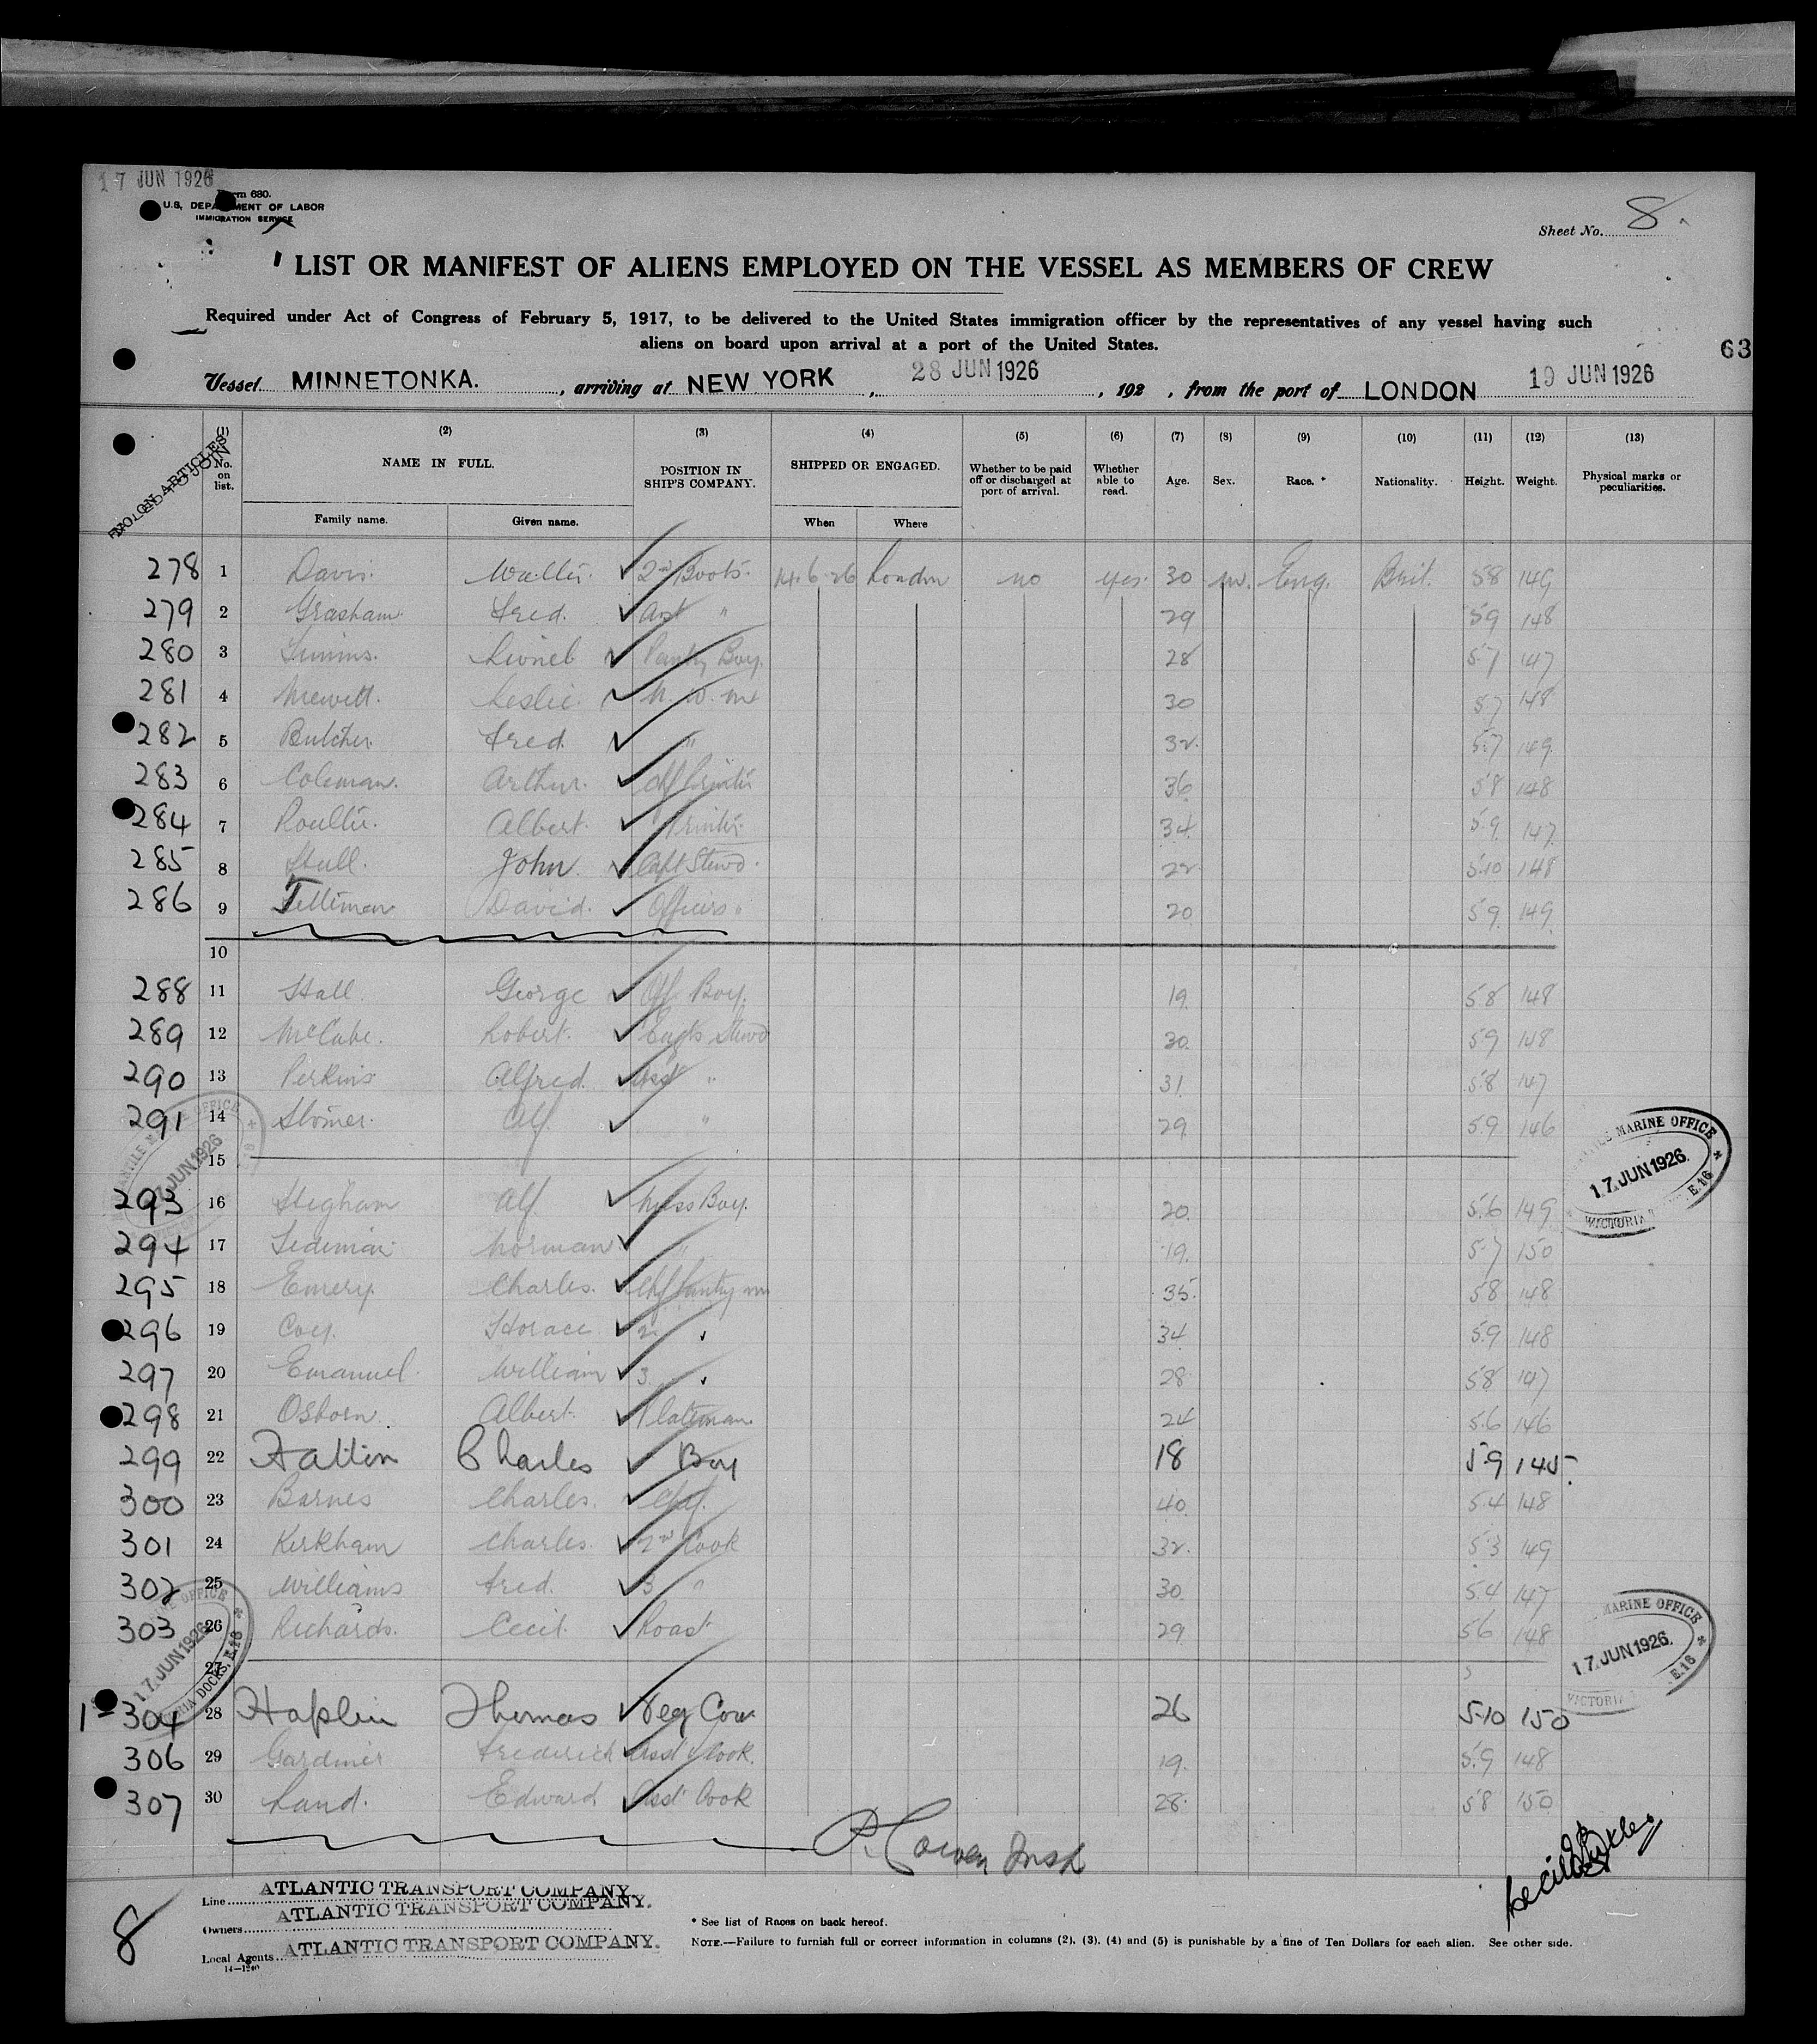 17 JUN 1926
Form 680.
U.S. DEPARTMENT OF LABOR
IMMIGRATION SERVICE
Sheet No. 8
LIST OR MANIFEST OF ALIENS EMPLOYED ON THE VESSEL AS MEMBERS OF CREW
Required under Act of Congress of February 5, 1917, to be delivered to the United States immigration officer by the representatives of any vessel having such
aliens on board upon arrival at a port of the United States.
63
Vessel MINNETONKA. , arriving at NEW YORK , 28 JUN 1926 , 192 , from the port of LONDON 19 JUN 1926
(1) (2) (3) (4) (5) (6) (7) (8) (9) (10) (11) (12) (13)
No. on list. NAME IN FULL. POSITION IN SHIP'S COMPANY. SHIPPED OR ENGAGED. Whether to be paid off or discharged at port of arrival. Whether able to read. Age. Sex. Race. * Nationality. Height. Weight. Physical marks or peculiarities.
Family name. Given name. When Where
278 1 Davis. Walter. 2nd Boots. 14.6.26 London no yes. 30 m. Eng. Brit. 5 8 149
279 2 Grasham Fred. Asst " 29 5 9 148
280 3 Simms. Lionel Pantry Boy. 28 5 7 147
281 4 Mewett. Leslie. 30 5 7 148
282 5 Butcher Fred. " 32. 5.7 149
283 6 Coleman. Arthur. Chf Printer 36 5 8 148
284 7 Albert. Printer. 34 5.9 147
285 8 John. Capt Stewd. 22 5.10 148
286 9 David. Officers " 20 5 9 149
10
288 11 Hall. George Off Boy. 19. 5 8 148
289 12 McCabe. Robert. Engrs Stewd 30. 5 9 148
290 13 Perkins Alfred. Asst " 31. 5.8 147
291 14 Alf. " 29. 5.9 146
15
293 16 Higham Alf. Mess Boy. 20. 5.6 149
294 17 Norman " 19. 5.7 150
295 18 Emery. Charles. Chf Pantry m 35. 5 8 148
296 19 Coey. Horace 2. " 34 5.9 148
297 20 Emanuel. William 3 " 28 5 8 147
298 21 Osborn. Albert. Plateman. 24 5.6 146
299 22 Fattin Charles Boy 18 5.9 145.
300 23 Barnes Charles. Chf. 40. 5.4 148
301 24 Kirkham Charles. 2nd Cook 32. 5.3 149
302 25 Williams Fred. 3 " 30. 5.4 147
303 26 Richards. Cecil. Roast 29 5 6 148
27
1 304 28 Haplin Thomas Veg Cook 26 5.10 150
306 29 Gardiner Frederick Asst Cook. 19. 5.9 148
307 30 Land. Edward Asst Cook 28. 5 8 150
MARINE OFFICE
17.JUN1926.
VICTORIA E.16
MARINE OFFICE
17.JUN1926.
VICTORIA E.16
Line ATLANTIC TRANSPORT COMPANY.
Owners ATLANTIC TRANSPORT COMPANY.
Local Agents ATLANTIC TRANSPORT COMPANY.
14—1240
8
* See list of Races on back hereof.
NOTE.—Failure to furnish full or correct information in columns (2), (3), (4) and (5) is punishable by a fine of Ten Dollars for each alien. See other side.